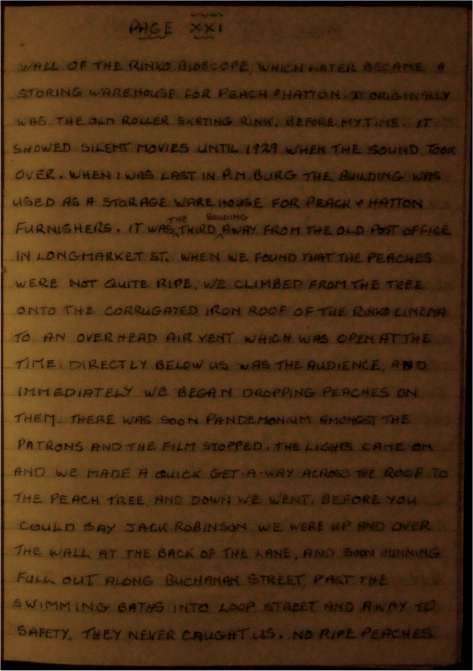 PAGE XXI
WALL OF THE RINKO BIOSCOPE, WHICH LATER BECAME A
STORING WAREHOUSE FOR PEACH & HATTON. IT ORIGINALLY
WAS THE OLD ROLLER SKATING RINK, BEFORE MY TIME. IT
SHOWED SILENT MOVIES UNTIL 1929 WHEN THE SOUND TOOK
OVER. WHEN I WAS LAST IN P.M. BURG THE BUILDING WAS
USED AS A STORAGE WAREHOUSE FOR PEACH & HATTON
FURNISHERS. IT WAS THE THIRD BUILDING AWAY FROM THE OLD POST OFFICE
IN LONGMARKET ST. WHEN WE FOUND THAT THE PEACHES
WERE NOT QUITE RIPE, WE CLIMBED FROM THE TREE
ONTO THE CORRUGATED IRON ROOF OF THE RINKO CINEMA
TO AN OVERHEAD AIR VENT WHICH WAS OPEN AT THE
TIME. DIRECTLY BELOW US WAS THE AUDIENCE, AND
IMMEDIATELY WE BEGAN DROPPING PEACHES ON
THEM. THERE WAS SOON PANDEMONIUM AMONGST THE
PATRONS AND THE FILM STOPPED. THE LIGHTS CAME ON
AND WE MADE A QUICK GET-A-WAY ACROSS THE ROOF TO
THE PEACH TREE AND DOWN WE WENT. BEFORE YOU
COULD SAY JACK ROBINSON WE WERE UP AND OVER
THE WALL AT THE BACK OF THE LANE, AND SOON RUNNING
FULL OUT ALONG BUCHANAN STREET, PAST THE
SWIMMING BATHS INTO LOOP STREET AND AWAY TO
SAFETY. THEY NEVER CAUGHT US. NO RIPE PEACHES